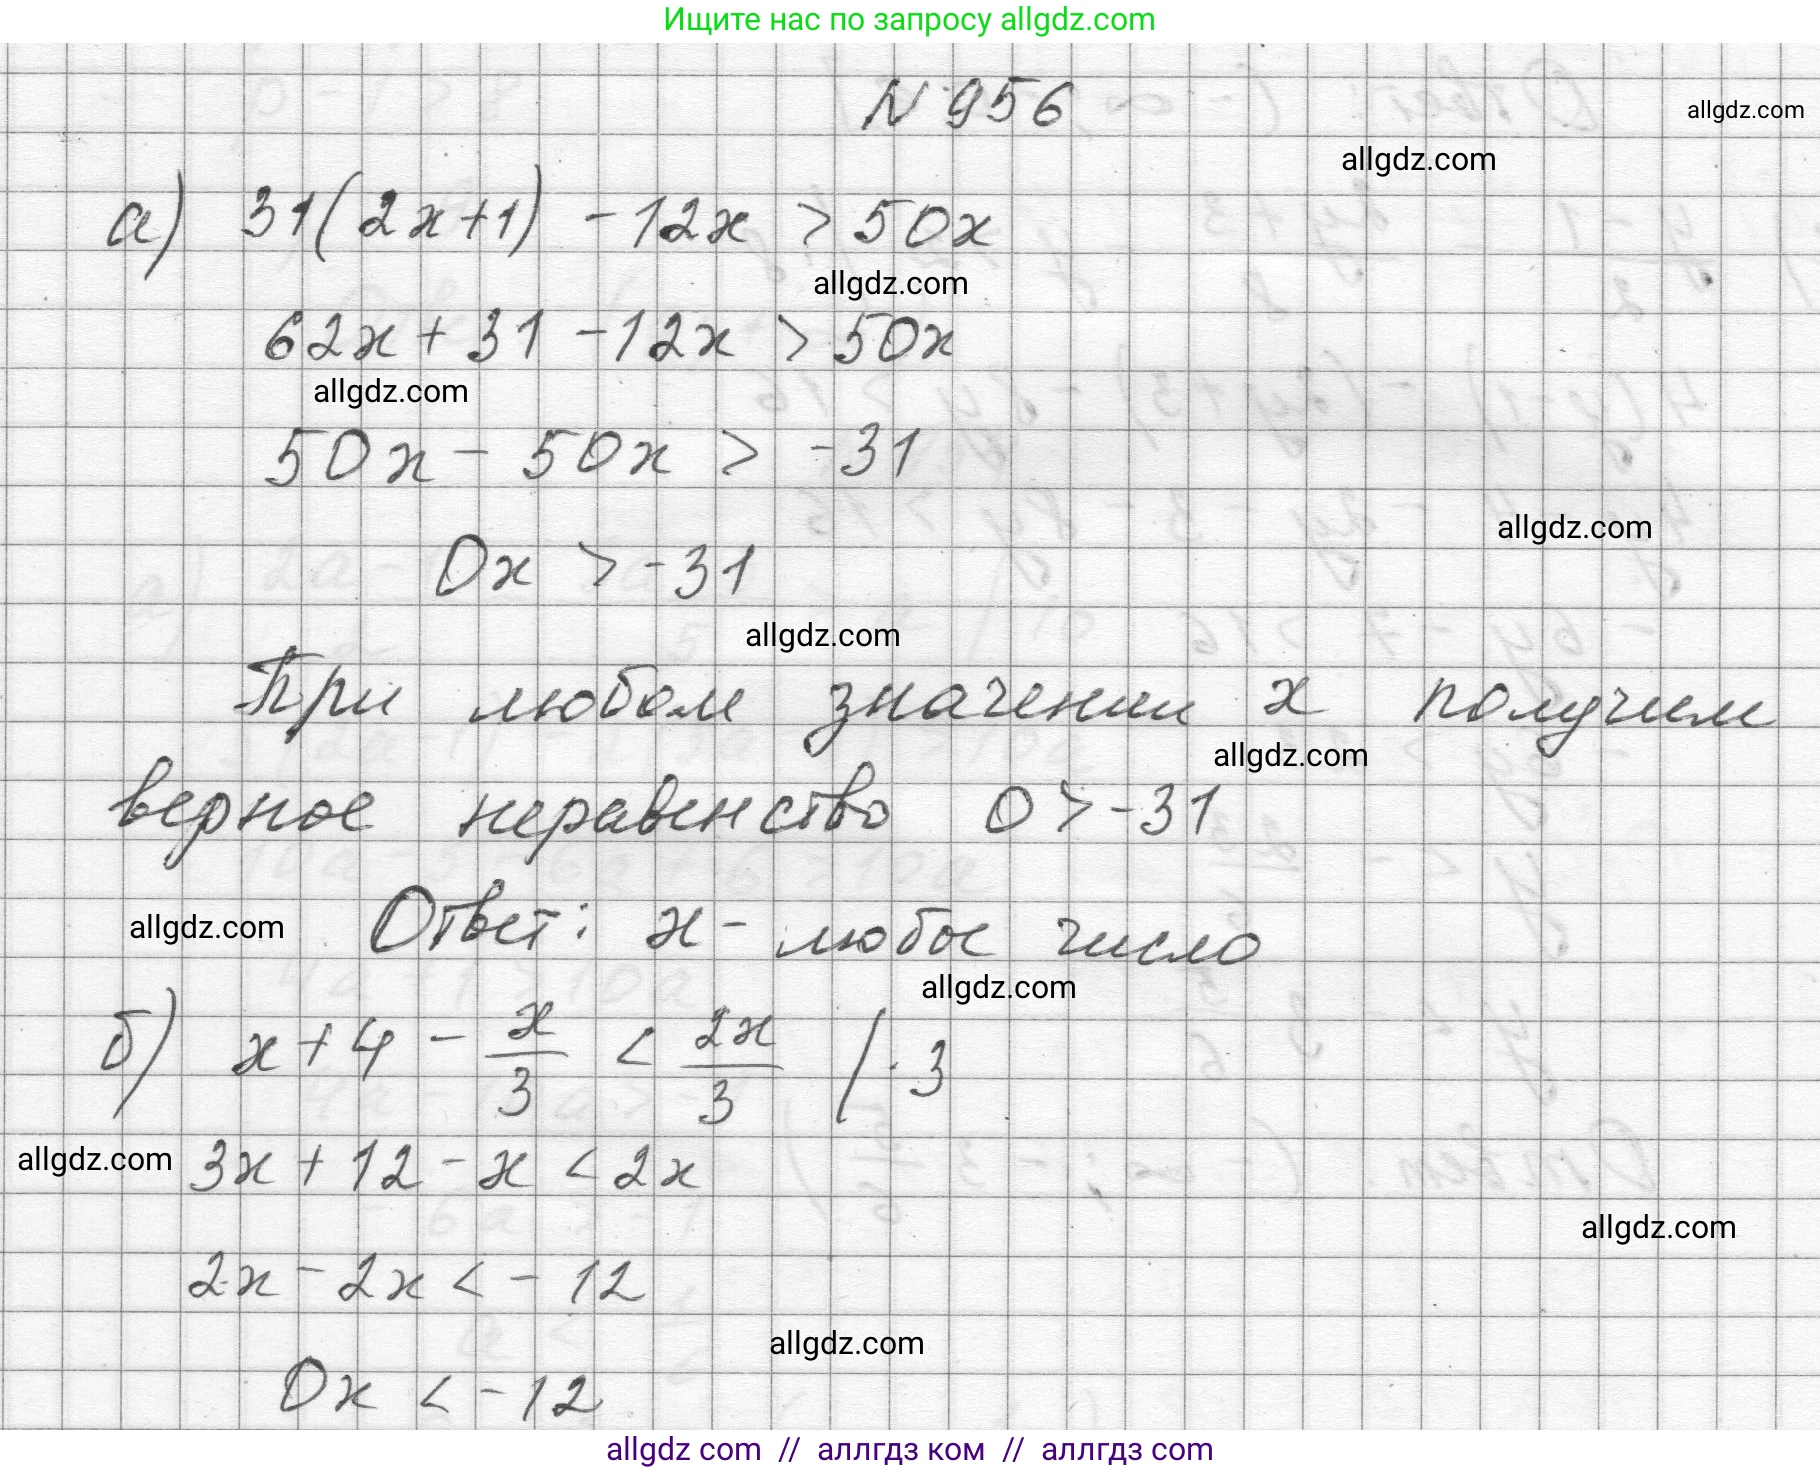 Ищите нас по запросу allgdz.com
N 956
allgdz.com
allgdz.com
а) 31(2x+1) - 12x > 50x
allgdz.com
62x + 31 - 12x > 50x
allgdz.com
50x - 50x > -31
allgdz.com
0x > -31
allgdz.com
При любом значении x получим
allgdz.com
верное неравенство 0 > -31
allgdz.com
Ответ: x - любое число
allgdz.com
б) x + 4 - x/3 < 2x/3 | · 3
allgdz.com
3x + 12 - x < 2x
allgdz.com
2x - 2x < - 12
allgdz.com
0x < -12
allgdz com // аллгдз ком // аллгдз com